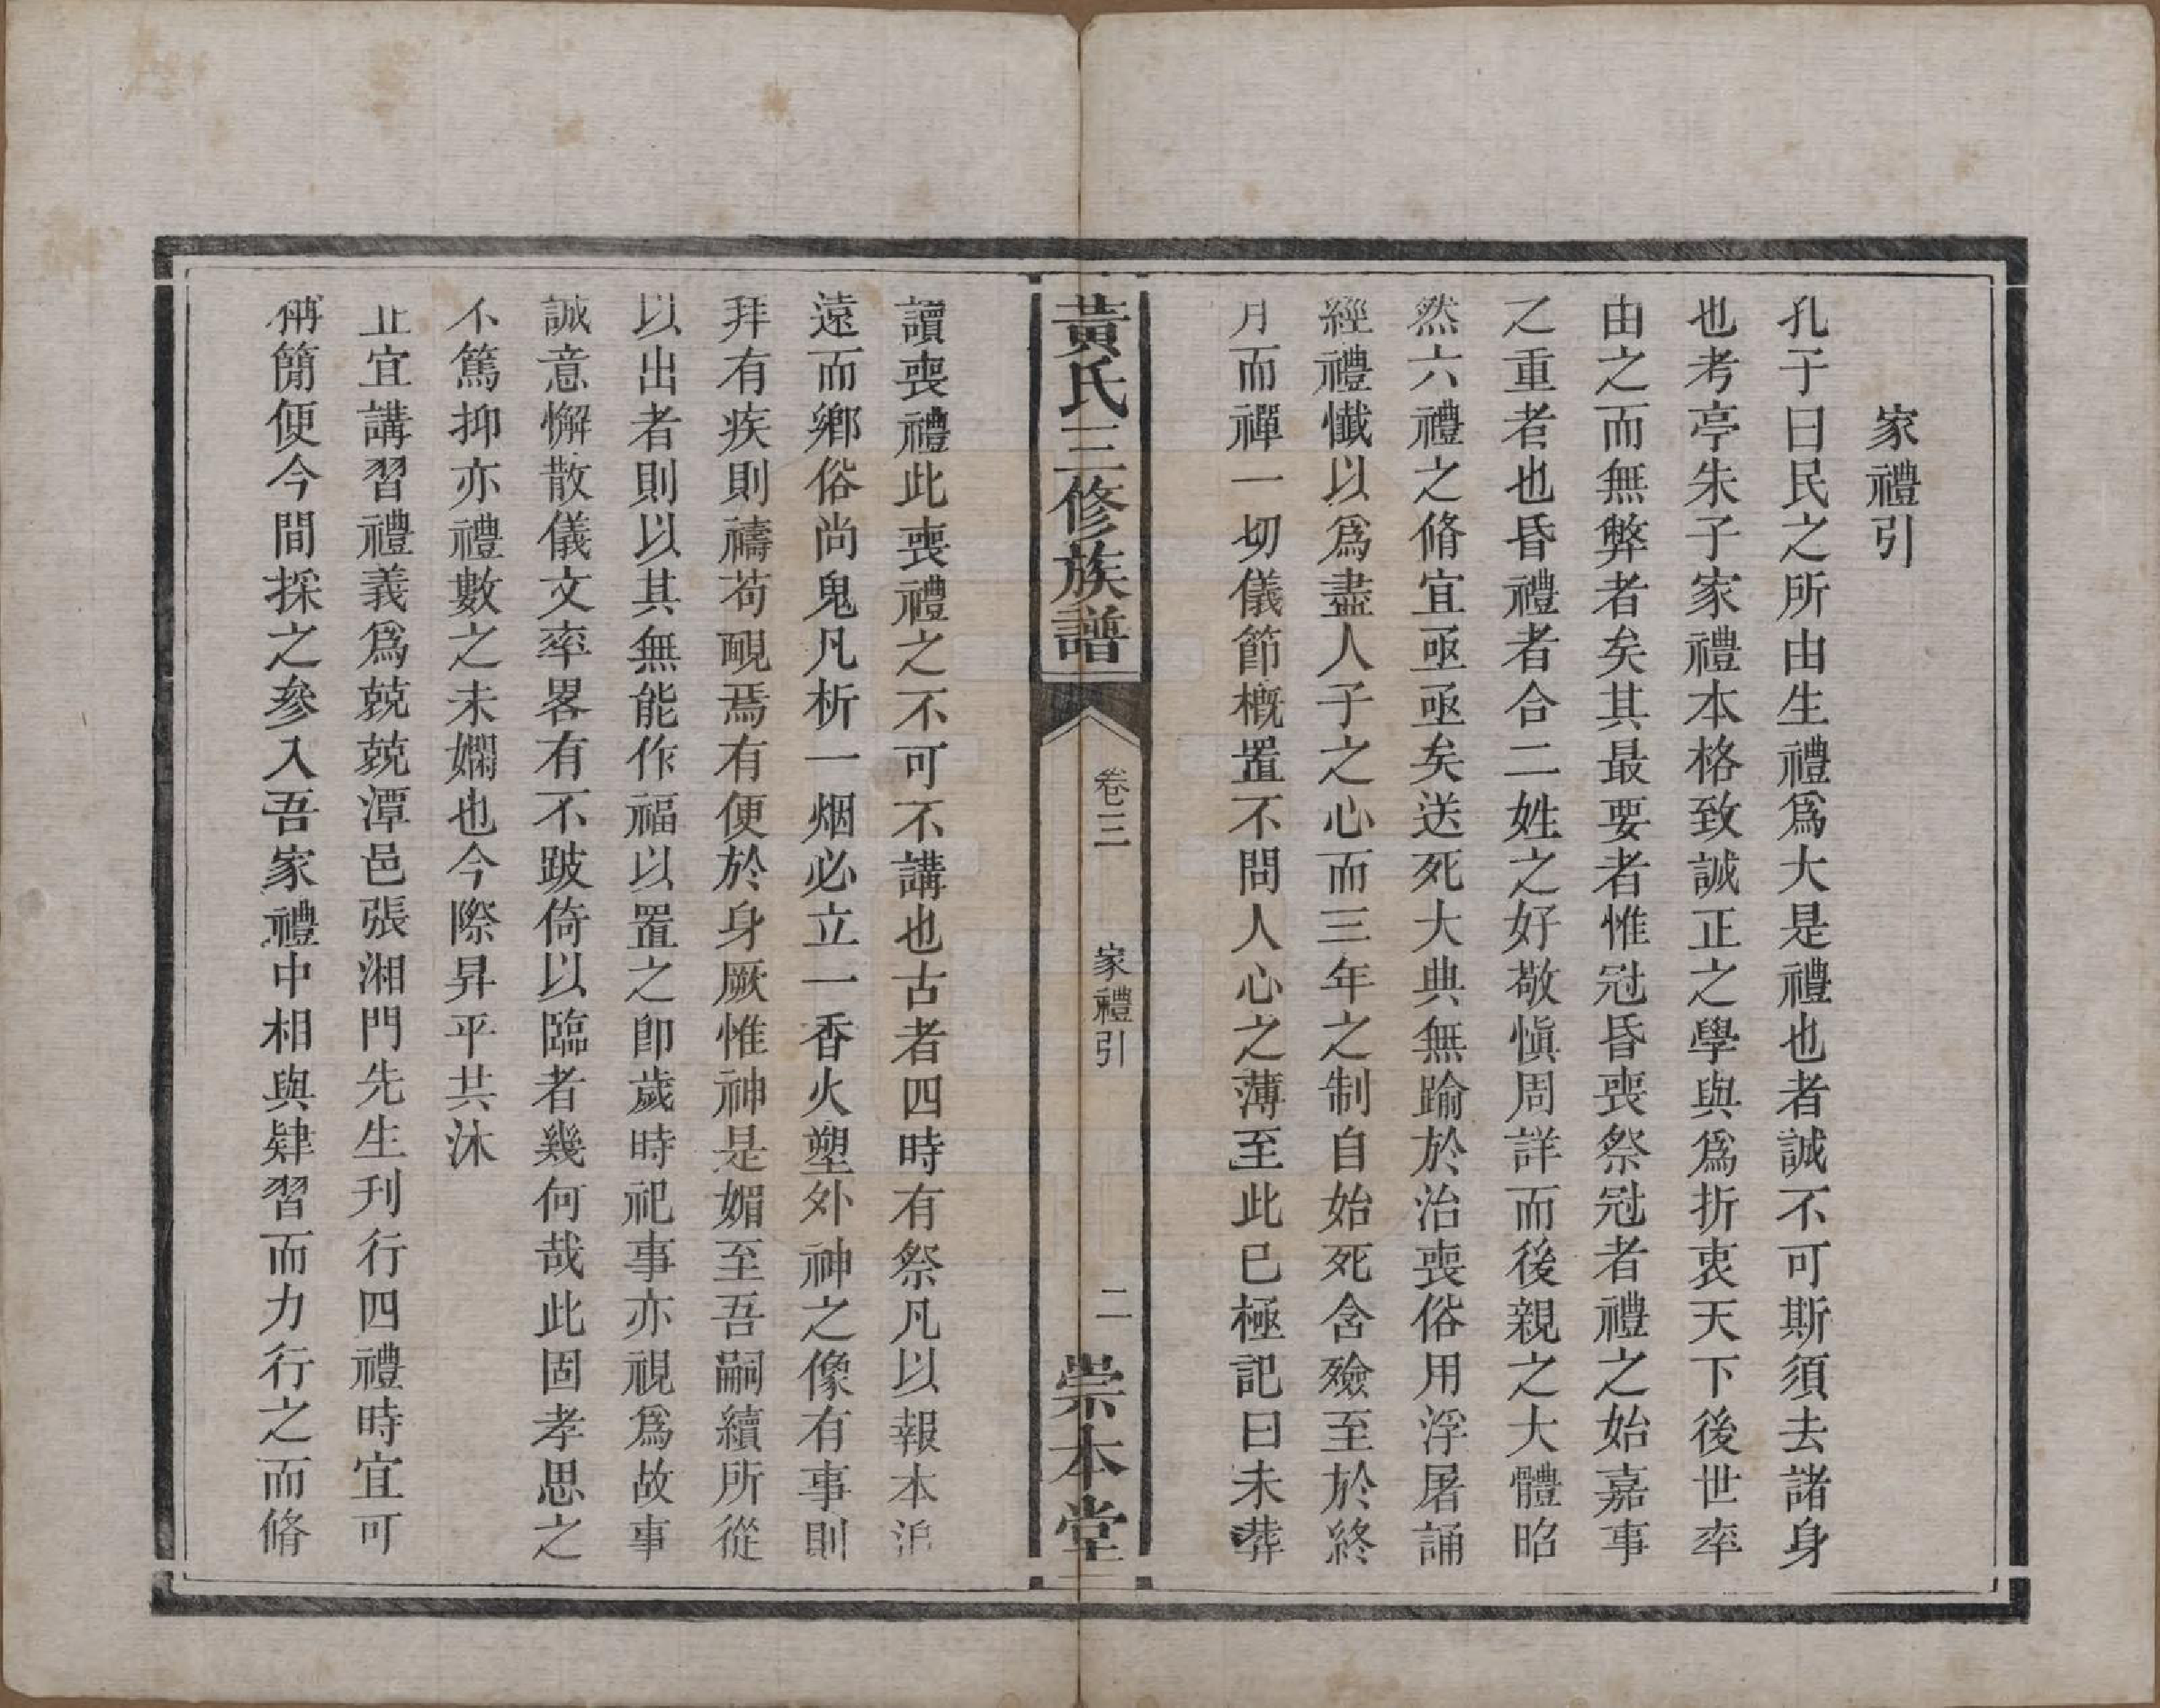 家禮引
孔子曰民之所由生禮爲大是禮也者誠不可斯須去諸身
也考亭朱子家禮本格致誠正之學與爲折衷天下後世率
由之而無弊者矣其最要者惟冠昏喪祭冠者禮之始嘉事
之重者也昏禮者合二姓之好敬愼周詳而後親之大體昭
然六禮之脩宜亟亟矣送死大典無踰於治喪俗用浮屠誦
經禮懺以爲盡人子之心而三年之制自始死含殮至於終
月而禫一切儀節槪置不問人心之薄至此已極記曰未葬
黃氏三修族譜
卷三
家禮引
二
崇本堂
讀喪禮此喪禮之不可不講也古者四時有祭凡以報本追
遠而鄉俗尚鬼凡析一烟必立一香火塑外神之像有事則
拜有疾則禱苟覥焉有便於身厥惟神是媚至吾嗣續所從
以出者則以其無能作福以置之卽歲時祀事亦視爲故事
誠意懈散儀文率畧有不跛倚以臨者幾何哉此固孝思之
不篤抑亦禮數之未嫺也今際昇平共沐
正宜講習禮義爲兢兢潭邑張湘門先生刋行四禮時宜可
稱簡便今間採之參入吾家禮中相與肄習而力行之而脩